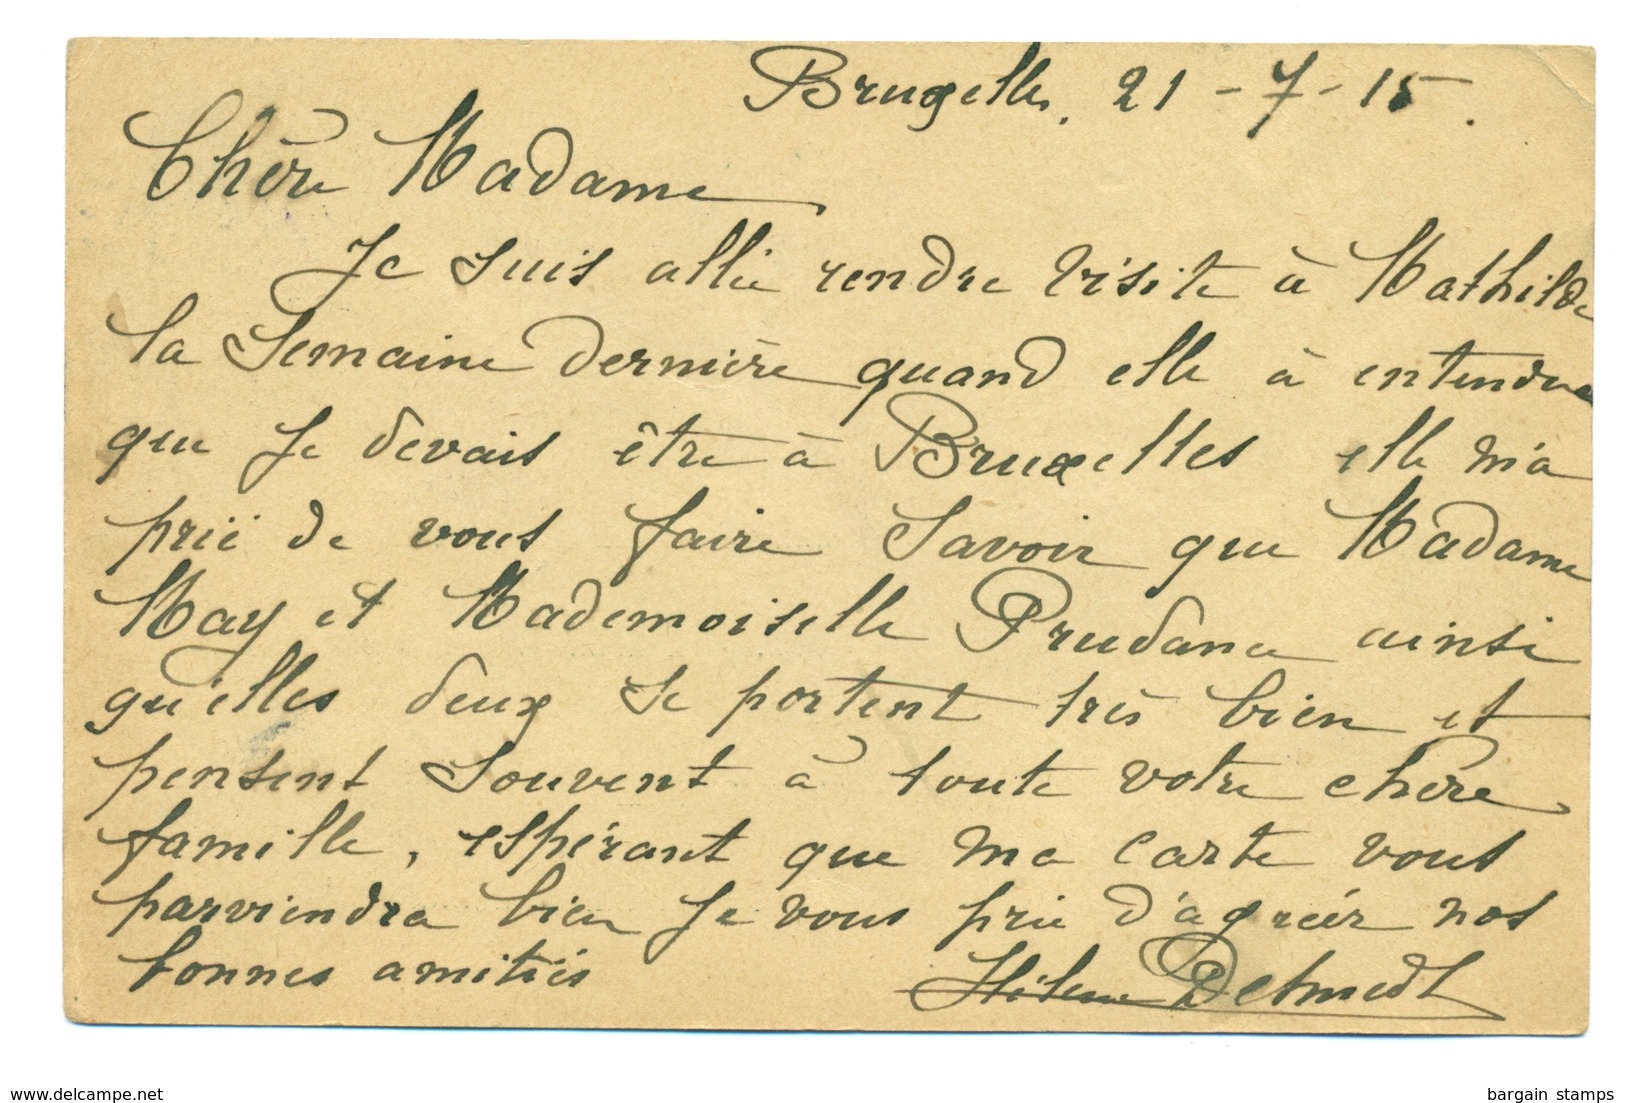 Bruxelles, 21-7-15.
Chère Madame
Je suis allée rendre visite à Mathilde
la Semaine dernière quand elle à entendue
que Je devais être à Bruxelles elle m'a
prié de vous faire Savoir que Madame
May et Mademoiselle Prudance ainsi
qu'elles deux se portent très bien et
pensent souvent à toute votre chère
famille, espérant que ma carte vous
parviendra bien Je vous prie d'agréér nos
bonnes amitiés Hélène Desmedt
www.delcampe.net bargain stamps